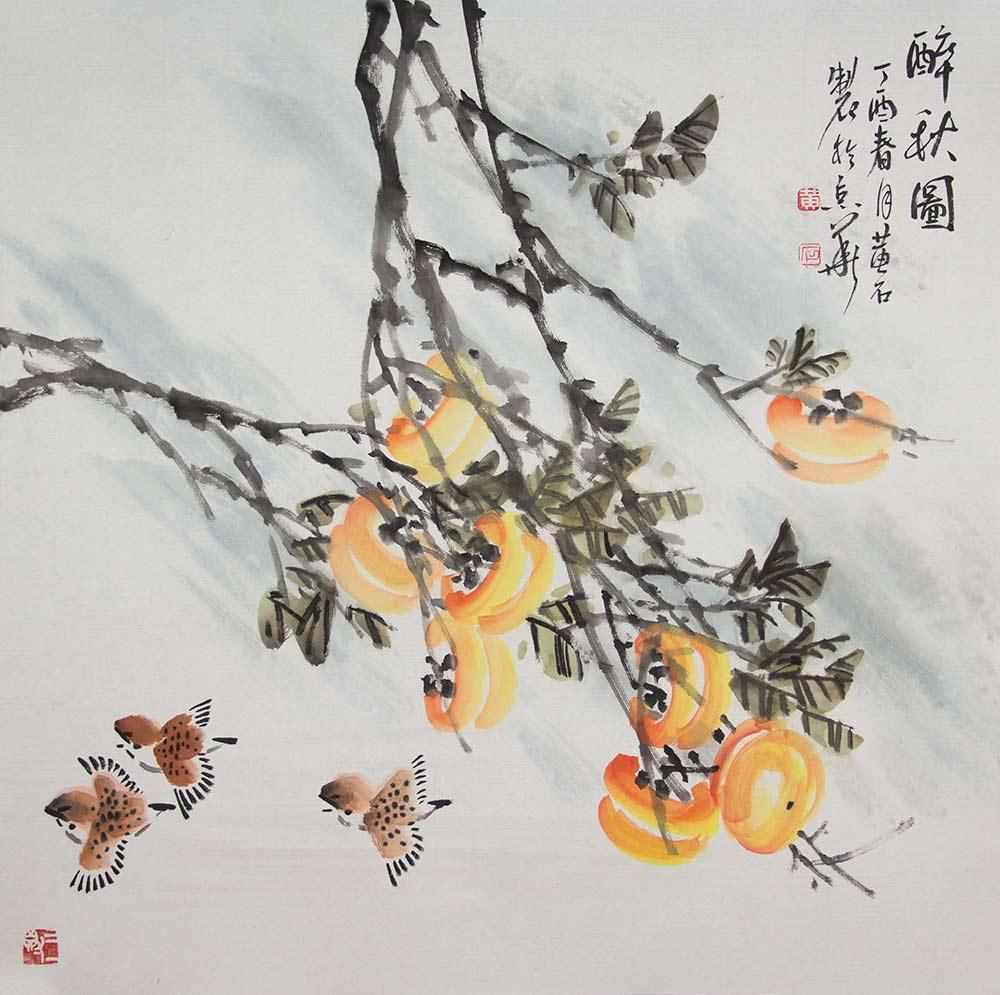 醉秋圖
丁酉春月黄石
製於京華
黄
石